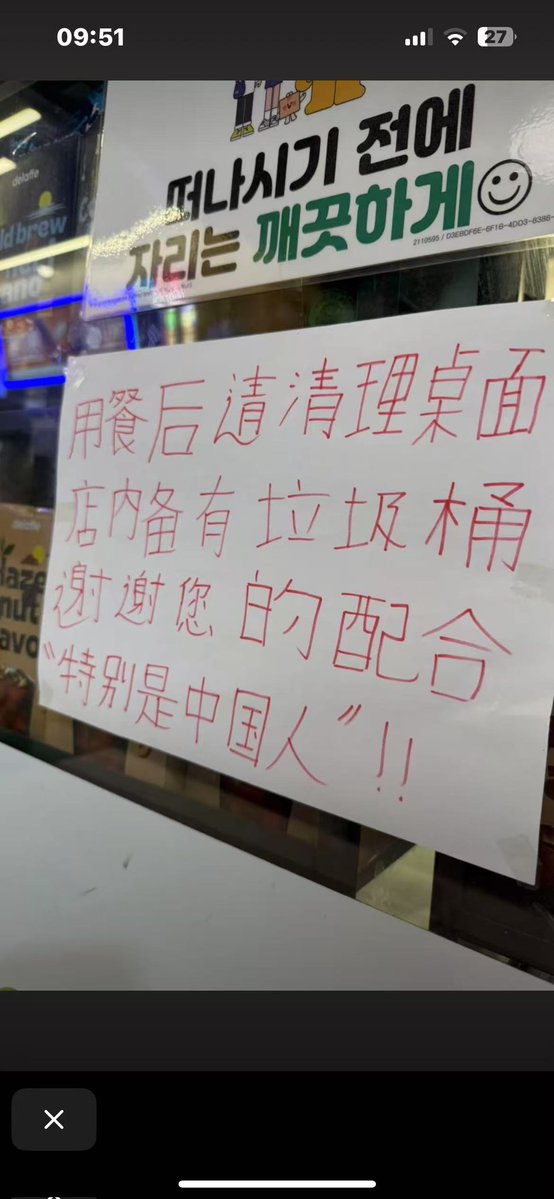 09:51
27
떠나시기 전에
자리는 깨끗하게
delaffe
用餐后请清理桌面
店内备有垃圾桶
谢谢您的配合
"特别是中国人"!!